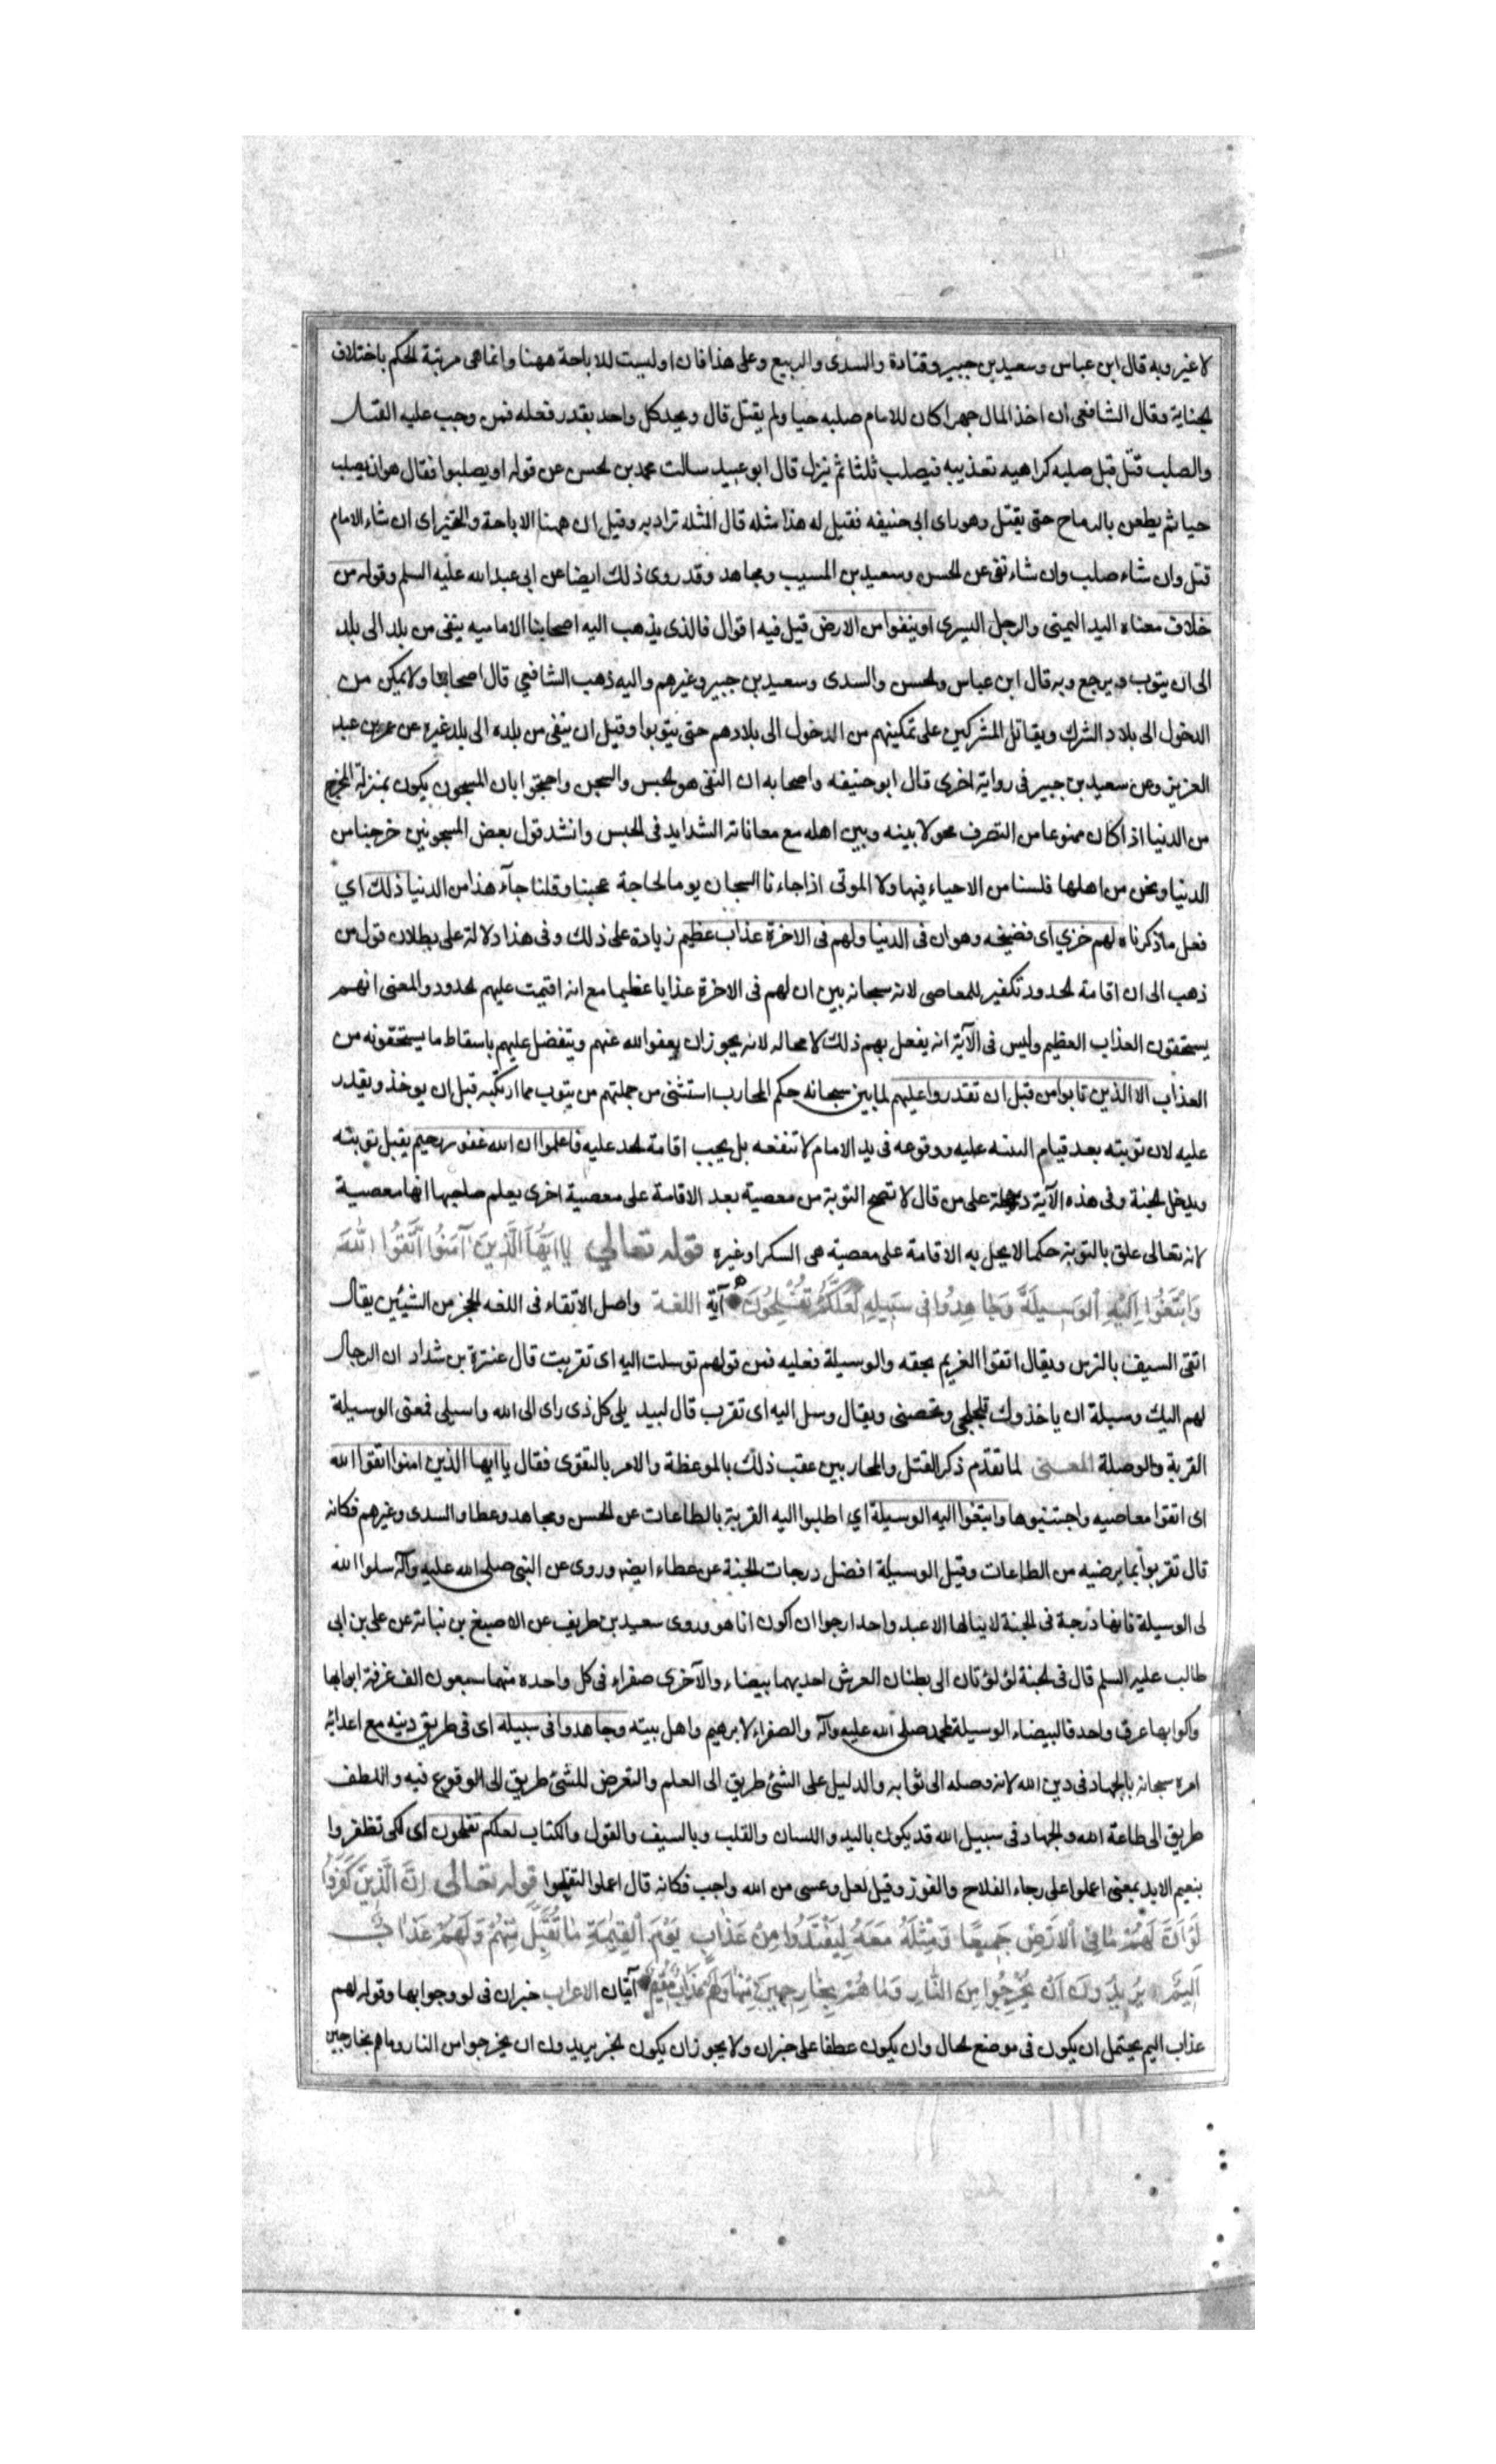 لا غير وبه قال ابن عباس وسعيد بن جبير وقتادة والسدى والربيع وعلى هذا فان او ليست للاباحة ههنا وانما هى مرتبة الحكم باختلاف
الجناية وقال الشافعى ان اخذ المال جهرا كان للامام صلبه حيا ولم يقتل قال ويحد كل واحد بقدر فعله فمن وجب عليه القتل
والصلب قتل قبل صلبه كراهيه تعذيبه فيصلب ثلثا ثم ينزل قال ابو عبيد سالت محمد بن الحسن عن قوله او يصلبوا فقال هو ان يصلب
حيا ثم يطعن بالرماح حتى يقتل وهو راى ابى حنيفه فقيل له هذا مثله قال المثله تراد به وقيل ان ههنا الاباحة والتخير اى ان شاء الامام
قتل وان شاء صلب وان شاء نفى عن الحسن وسعيد بن المسيب ومجاهد وقد روى ذلك ايضا عن ابى عبدالله عليه السلم وقوله من
خلاف معناه اليد اليمنى والرجل اليسرى او ينفوا من الارض قيل فيه اقوال فالذى يذهب اليه اصحابنا الاماميه ينفى من بلد الى بلد
الى ان يتوب ويرجع وبه قال ابن عباس والحسن والسدى وسعيد بن جبير وغيرهم واليه ذهب الشافعي قال اصحابنا ولا يمكن من
الدخول الى بلاد الشرك ويقاتل المشركين على تمكينهم من الدخول الى بلادهم حتى يتوبوا وقيل ان ينفى من بلده الى بلد غيره عن عمر بن عبد
العزيز وعن سعيد بن جبير فى رواية اخرى قال ابو حنيفه واصحابه ان النفى هو الحبس والسجن واحتجوا بان المسجون يكون بمنزلة المخرج
من الدنيا اذا كان ممنوعا من التصرف محولا بينه وبين اهله مع معاناته الشدايد فى الحبس وانشد قول بعض المسجونين خرجنا من
الدنيا ونحن من اهلها فلسنا من الاحياء فيها ولا الموتى اذا جاءنا السجان يوما لحاجة عجبنا وقلنا جآء هذا من الدنيا ذلك اي
فعل ما ذكرناه لهم خزي اى فضيحه وهوان فى الدنيا ولهم فى الاخرة عذاب عظيم زيادة على ذلك وفى هذا دلالة على بطلان قول من
ذهب الى ان اقامة الحدود تكفير للمعاصى لانه سبحانه بين ان لهم فى الاخرة عذابا عظيما مع انه اقيمت عليهم الحدود والمعنى انهم
يستحقون العذاب العظيم وليس فى الآية انه يفعل بهم ذلك لا محاله لانه يجوز ان يعفو الله عنهم ويتفضل عليهم باسقاط ما يستحقونه من
العذاب الا الذين تابوا من قبل ان تقدروا عليهم لما بين سبحانه حكم المحارب استثنى من جملتهم من يتوب مما ارتكبه قبل ان يوخذ ويقدر
عليه لان توبته بعد قيام البينه عليه ووقوعه فى يد الامام لا تنفعه بل يجب اقامة الحد عليه فاعلموا ان الله غفور رحيم يقبل توبته
ويدخل الجنة وفى هذه الآية دلالة على من قال لا تصح التوبة من معصية بعد الاقامة على معصية اخرى يعلم صاحبها انها معصية
لانه تعالى علق بالتوبة حكما لا يحل به الاقامة على معصية هى السكر او غيره قوله تعالى يَا اَيُّهَا الَّذِينَ آمَنُوا اتَّقُوا اللهَ
وَابْتَغُوا اِلَيْهِ الْوَسِيلَةَ وَجَاهِدُوا فِى سَبِيلِهِ لَعَلَّكُمْ تُفْلِحُونَ آية اللغة واصل الاتقاء فى اللغه الحجز من الشيئين يقال
اتقى السيف بالترس ويقال اتقوا الغريم بحقه والوسيلة فعليه فمن قولهم توسلت اليه اى تقربت قال عنترة بن شداد ان الرجال
لهم اليك وسيلة ان ياخذوك تلجلجى وتحصنى ويقال وسل اليه اى تقرب قال لبيد بلى كل ذى راى الى الله واسيلى فمعنى الوسيلة
القربة والوصلة المعنى لما تقدم ذكر القتل والمحاربين عقب ذلك بالموعظة والامر بالتقوى فقال يا ايها الذين امنوا اتقوا الله
اى اتقوا معاصيه واجتنبوها وابتغوا اليه الوسيلة اي اطلبوا اليه القربة بالطاعات عن الحسن ومجاهد وعطا والسدى وغيرهم فكانه
قال تقربوا بما يرضيه من الطاعات وقيل الوسيلة افضل درجات الجنة عن عطاء ايضا وروى عن النبى صلى الله عليه وآله سلوا الله
لى الوسيلة فانها درجة فى الجنة لا ينالها الا عبد واحد ارجوا ان اكون انا هو وروى سعيد بن طريف عن الاصبغ بن نباتة عن على بن ابى
طالب عليه السلم قال فى الجنة لؤلؤتان الى بطنان العرش احديهما بيضاء والآخرى صفراء فى كل واحده منهما سبعون الف غرفة ابوابها
واكوابها عرق واحد فالبيضاء الوسيلة لمحمد صلى الله عليه وآله والصفراء لابرهيم واهل بيته وجاهدوا فى سبيله اى فى طريق دينه مع اعدائه
امره سبحانه بالجهاد فى دين الله لانه وصله الى ثوابه والدليل على الشئ طريق الى العلم والتعرض للشئ طريق الى الوقوع فيه واللطف
طريق الى طاعة الله والجهاد فى سبيل الله قد يكون باليد واللسان والقلب وبالسيف والقول والكتاب لعلكم تفلحون اى لكى تظفروا
بنعيم الابد بمعنى اعملوا على رجاء الفلاح والفوز وقيل لعل وعسى من الله واجب فكانه قال اعملوا لتفلحوا قوله تعالى اِنَّ الَّذِينَ كَفَرُوا
لَوْ اَنَّ لَهُمْ مَا فِى الْاَرْضِ جَمِيعًا وَمِثْلَهُ مَعَهُ لِيَفْتَدُوا مِنْ عَذَابِ يَوْمِ الْقِيٰمَةِ مَا تُقُبِّلَ مِنْهُمْ وَلَهُمْ عَذَابٌ
اَلِيمٌ يُرِيدُونَ اَنْ يَخْرُجُوا مِنَ النَّارِ وَمَا هُمْ بِخَارِجِينَ مِنْهَا وَلَهُمْ عَذَابٌ مُقِيمٌ آيتان الاعراب خبر ان فى لو وجوابها وقوله لهم
عذاب اليم يحتمل ان يكون فى موضع الحال وان يكون عطفا على خبر ان ولا يجوز ان يكون الخبر يريدون ان يخرجوا من النار وما هم بخارجين